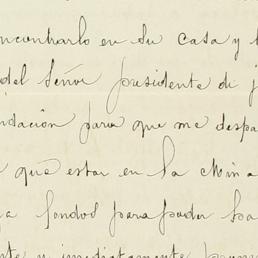 ncontrarlo en su casa y
del Señor presidente de
ndación para que me despa
que estar en la Mina
fondos para poder
te y inmediatamente